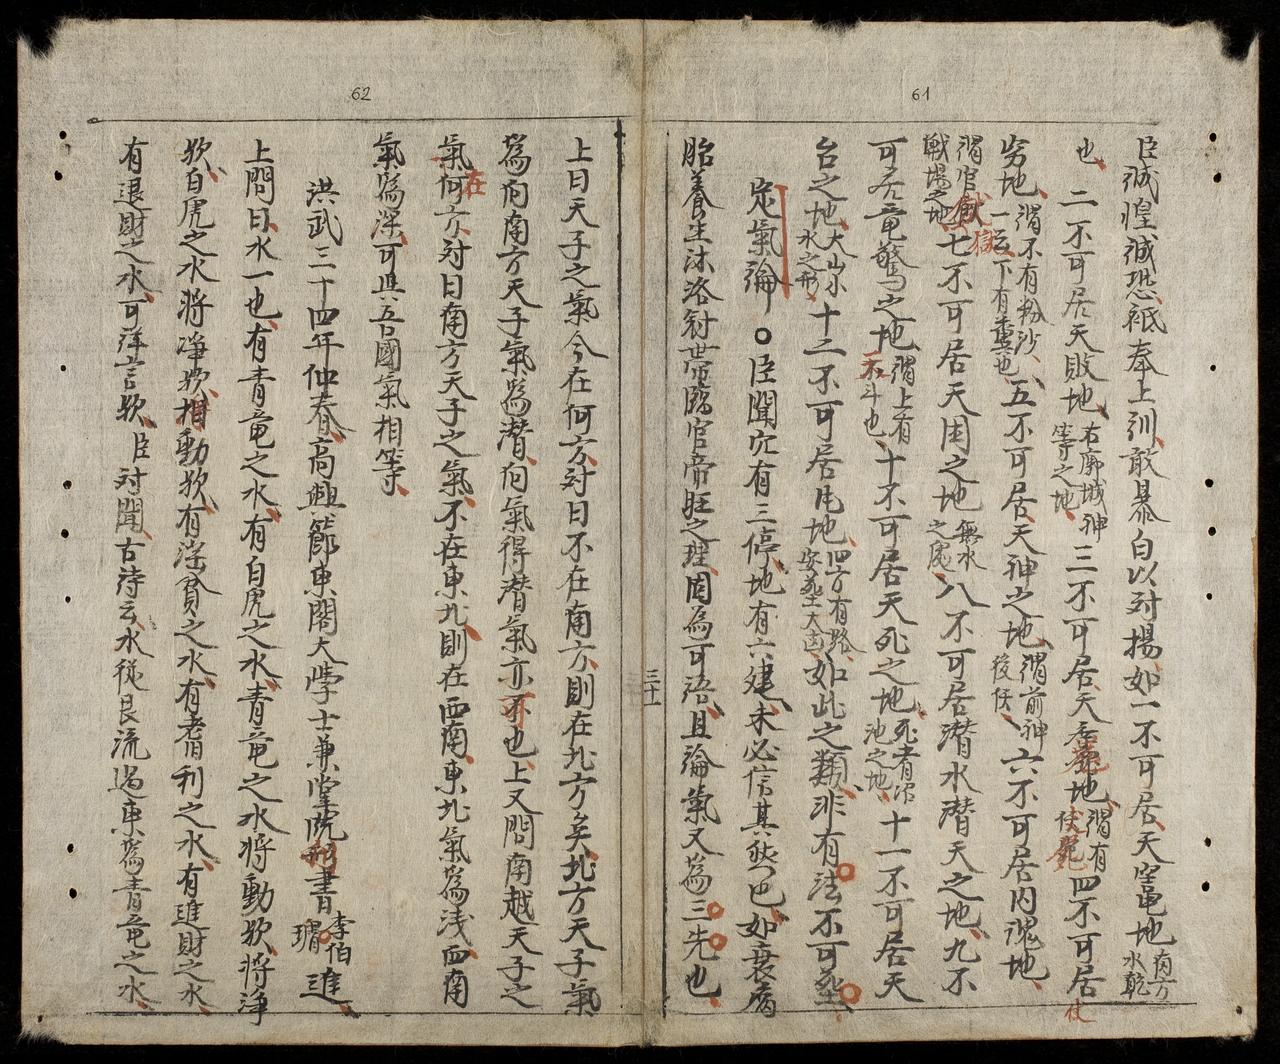 61
臣誠惶誠恐祗奉上訓敢暴白以対揚如一不可居天竃地南方水乾
也二不可居天敗地右廓城神等之地三不可居天地謂有四不可居
穷地謂不有粉沙一云下有也五不可居天神之地謂前神後伏六不可居内魂地
謂官獄戰場之地七不可居天囯之地無水之處八不可居潜水潜天之地九不
可居竜驚之地謂上有不斗也十不可居天死之地死者沼池之地十一不可居天
台之地大崇水之形十二不可居地四方有路安塟大凶如此之類非有法不可塟
定氣論○臣聞穴有三停地有六建未必信其然也如衰病
胎養生沐洛冠帯臨官帝旺之理固為可語且論氣又為三先也
三十一
62
上曰天子之氣今在何方対曰不在南方則在北方矣北方天子氣
為向南方天子氣為潜向氣得潜氣亦不也上又問南越天子之
氣何在方対曰南方天子之氣不在東北則在西南東北氣為浅西南
氣為深可與吾國氣相等
洪武三十四年仲春高興節東閣大學士兼掌院書李伯瑁進
上問曰水一也有青竜之水有白虎之水青竜之水将動欤将淨
欤白虎之水将淨欤相動欤有浮貧之水有耆利之水有進財之水
有退財之水可詳言欤臣対聞古詩云水從艮流過東為青竜之水